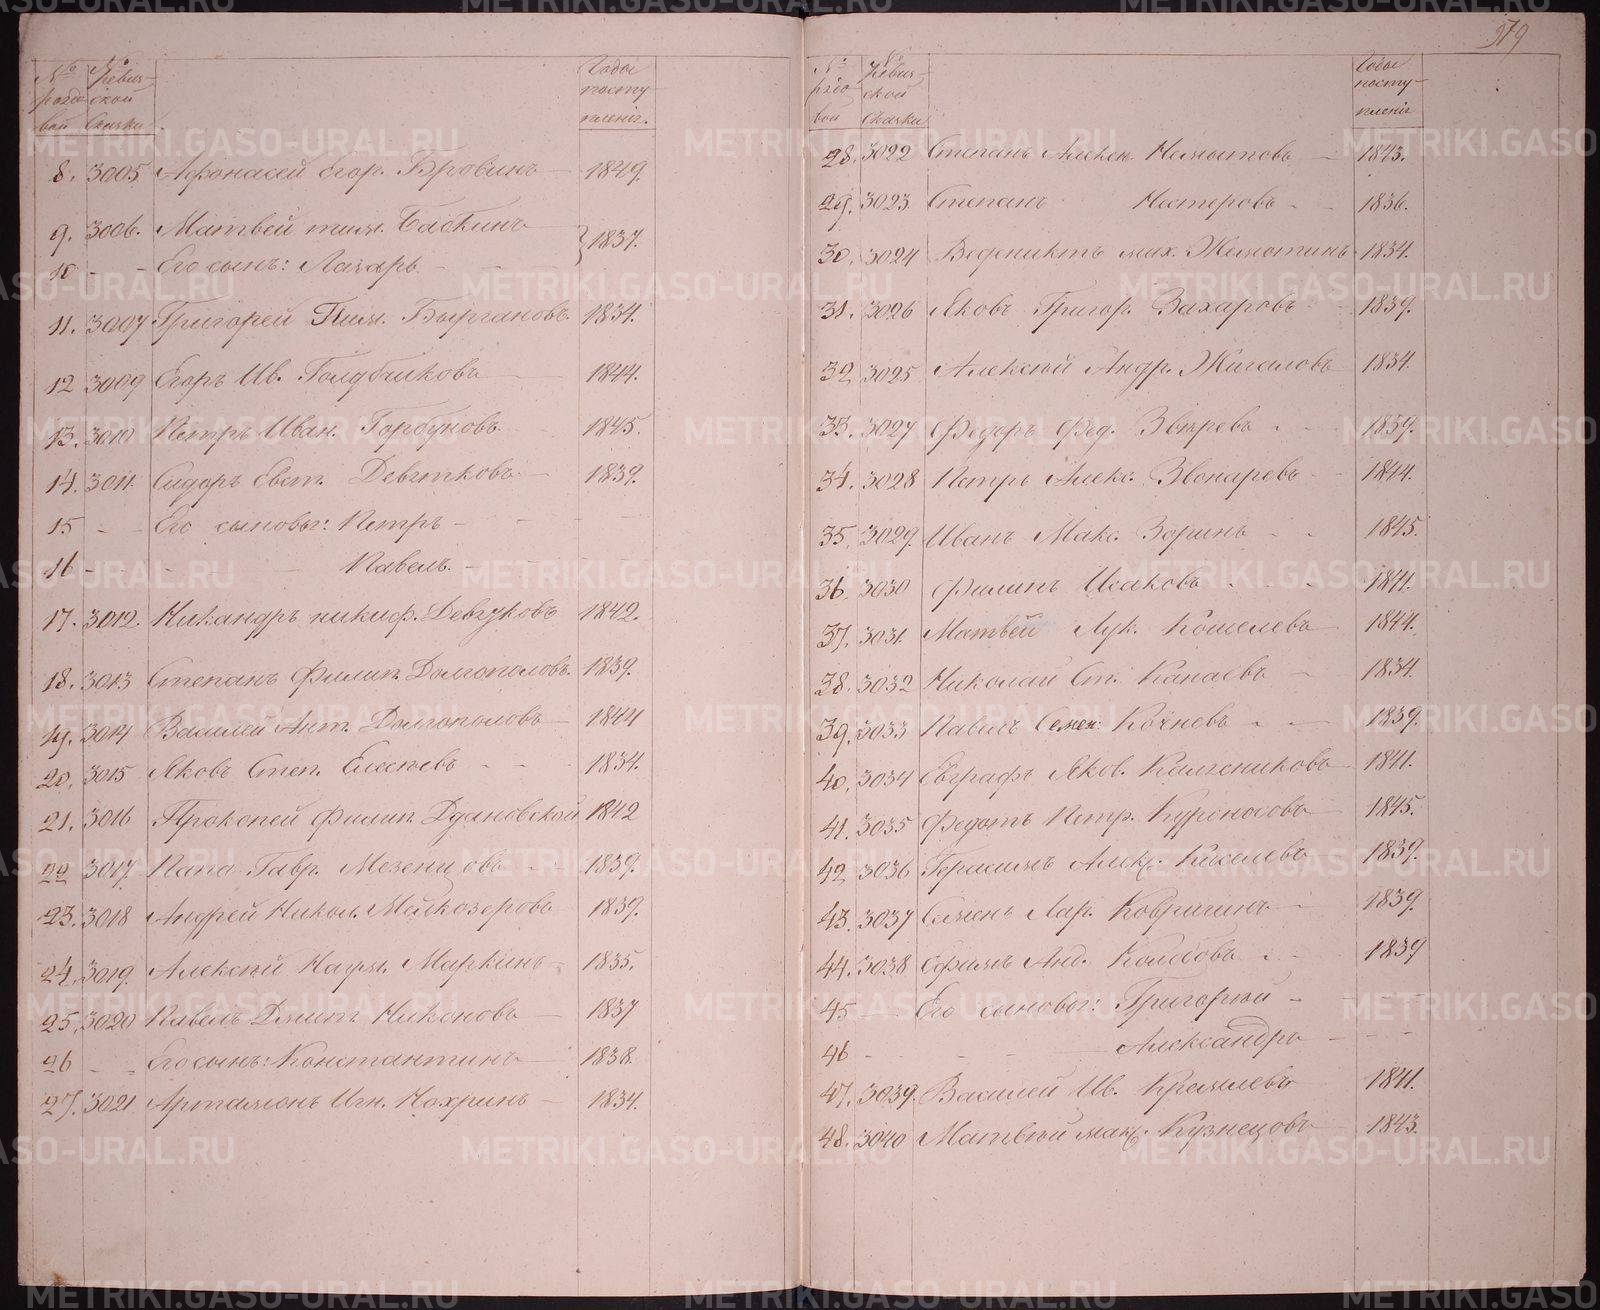 979
№ рядо вой
№ Ревиз ской сказки
Годы посту пленія.
8. 3005. Афонасей Егор. Бровинъ 1849.
9. 3006. Матвей тим. Баскинъ } 1837.
10 - - Его сынъ: Лазарь - -
11. 3007 Григорей Тим. 1834.
12 3009 Егоръ Ив. Голубчиковъ 1844.
13. 3010 Петръ Иван. Горбуновъ 1845.
14. 3011. Сидоръ Евст. Девятковъ 1839.
15 - - Его сыновья: Петръ - - -
16 - - - Павелъ. - -
17. 3012. Никандръ никиф. Девятковъ 1842.
18. 3013 Степанъ Филип. Долгополовъ. 1839.
19. 3014 Василей Ант. Долгополовъ 1844
20. 3015 Яковъ Степ. Елисеевъ - - 1834.
21. 3016 Прокопей Филип. 1842
22 3017. Гавр. Мезенцовъ 1839.
23. 3018 Андрей Никол. Мелкозеровъ 1839.
24. 3019. Алексей Наум. Маркинъ 1835.
25. 3020 Павелъ Дмит. Никоновъ 1837
26 - - Его сынъ: Константинъ 1838.
27. 3021 Артамонъ Игн. Кохринъ 1834.
№ рядо вой
№ Ревиз ской сказки
Годы посту пленія
28. 3022 Степанъ Алексеи. 1843.
29. 3023 Степанъ Нестеровъ - - 1836.
30. 3024 Ведениктъ мих. 1834.
31. 3026 Яковъ Григор. Захаровъ 1839.
32 3025 Алексей Андр. Жигаловъ 1834.
33. 3027 Федоръ Фед. Зверевъ - - 1839.
34. 3028 Петръ Алекс. Звонаревъ 1844.
35. 3029. Иванъ Макс. Зоринъ - - 1845.
36. 3030 Филипъ Исаковъ - - 1841.
37. 3031. Матвей Лук. Кошелевъ 1844.
38. 3032 Николай Ст. Канаевъ 1834.
39. 3033 Павелъ Семен: Кочневъ - - 1839.
40. 3034 Евграфъ Яков. Калгениковъ 1841.
41. 3035 Федотъ Петр. Курносовъ 1845.
42 3036 Герасимъ Алекс. Киселевъ 1839.
43. 3037 Семенъ Лар. Ковригинъ 1839.
44. 3038 Ефимъ Анд. Колобовъ - - 1839
45 - Его сыновья: Григорей - - -
46 - - - Александръ - - -
47. 3039. Василей Ив. Кремлевъ 1841.
48. 3040 Матвей макс. Кузнецовъ 1843.
METRIKI.GASO-URAL.RU